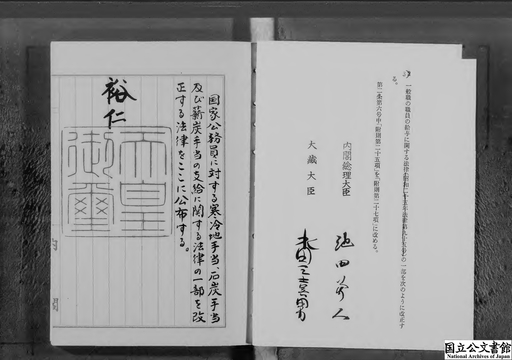 一般職の職員の給与に関する法律(昭和二十五年法律第九十五号)の一部を次のように改正す
る。
第二条第六号中「附則第二十五項」を「附則第二十七項」に改める。
内閣総理大臣 池田勇人
大蔵大臣
国家公務員に対する寒冷地手当、石炭手当
及び薪炭手当の支給に関する法律の一部を改
正する法律をここに公布する。
裕仁
天皇
御璽
国立公文書館
National Archives of Japan